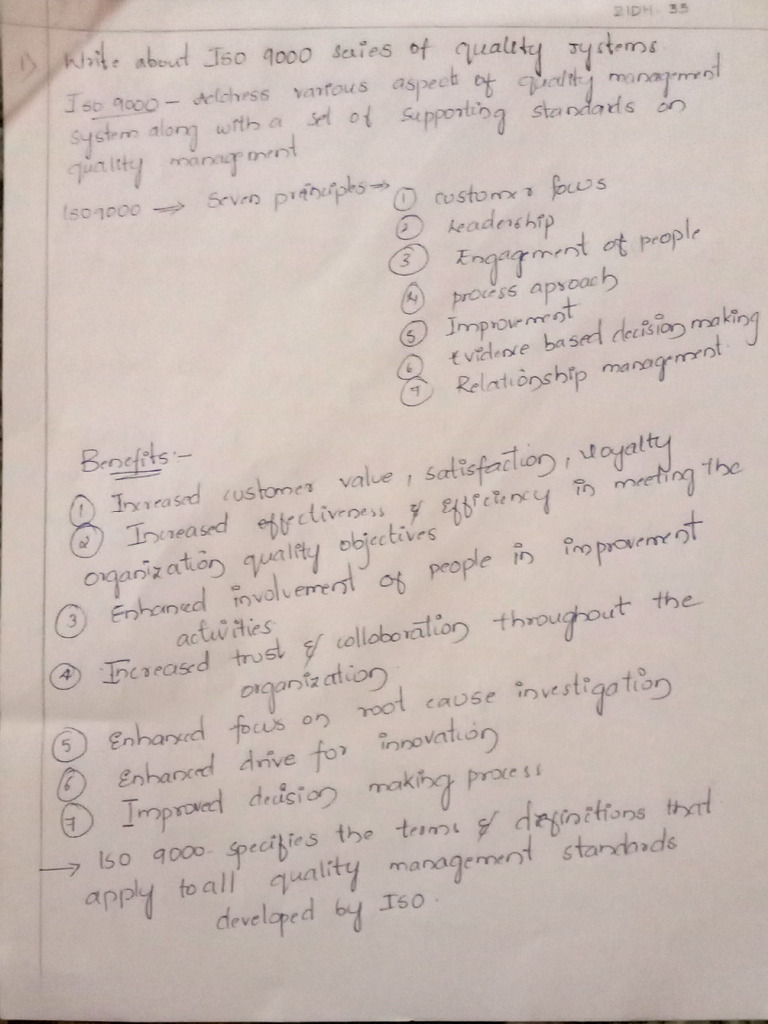 21DH. 35
1) Write about Iso 9000 series of quality systems
Iso 9000 - Address various aspect of quality management
system along with a set of supporting standards on
quality management
ISO9000 → Seven principles → ① customer focus
② Leadership
③ Engagement of people
④ process aproach
⑤ Improvement
⑥ Evidence based decision making
⑦ Relationship management.
Benefits:-
① Increased customer value, satisfaction, loyalty
② Increased effectiveness & efficiency in meeting the
organization quality objectives
③ Enhanced involvement of people in improvement
activities
④ Increased trust & collaboration throughout the
organization
⑤ Enhanced focus on root cause investigation
⑥ Enhanced drive for innovation
⑦ Improved decision making process
→ ISO 9000- specifies the terms & definitions that
apply to all quality management standards
developed by ISO.